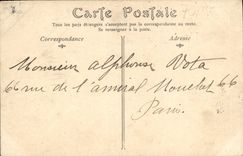 Carte Postale
Tous les pays étrangers n'acceptent pas la correspondance au recto.
Se renseigner à la poste.
Correspondance Adresse
Monsieur Alphonse Vota
66 rue de l'amiral Mouchet 66
Paris.